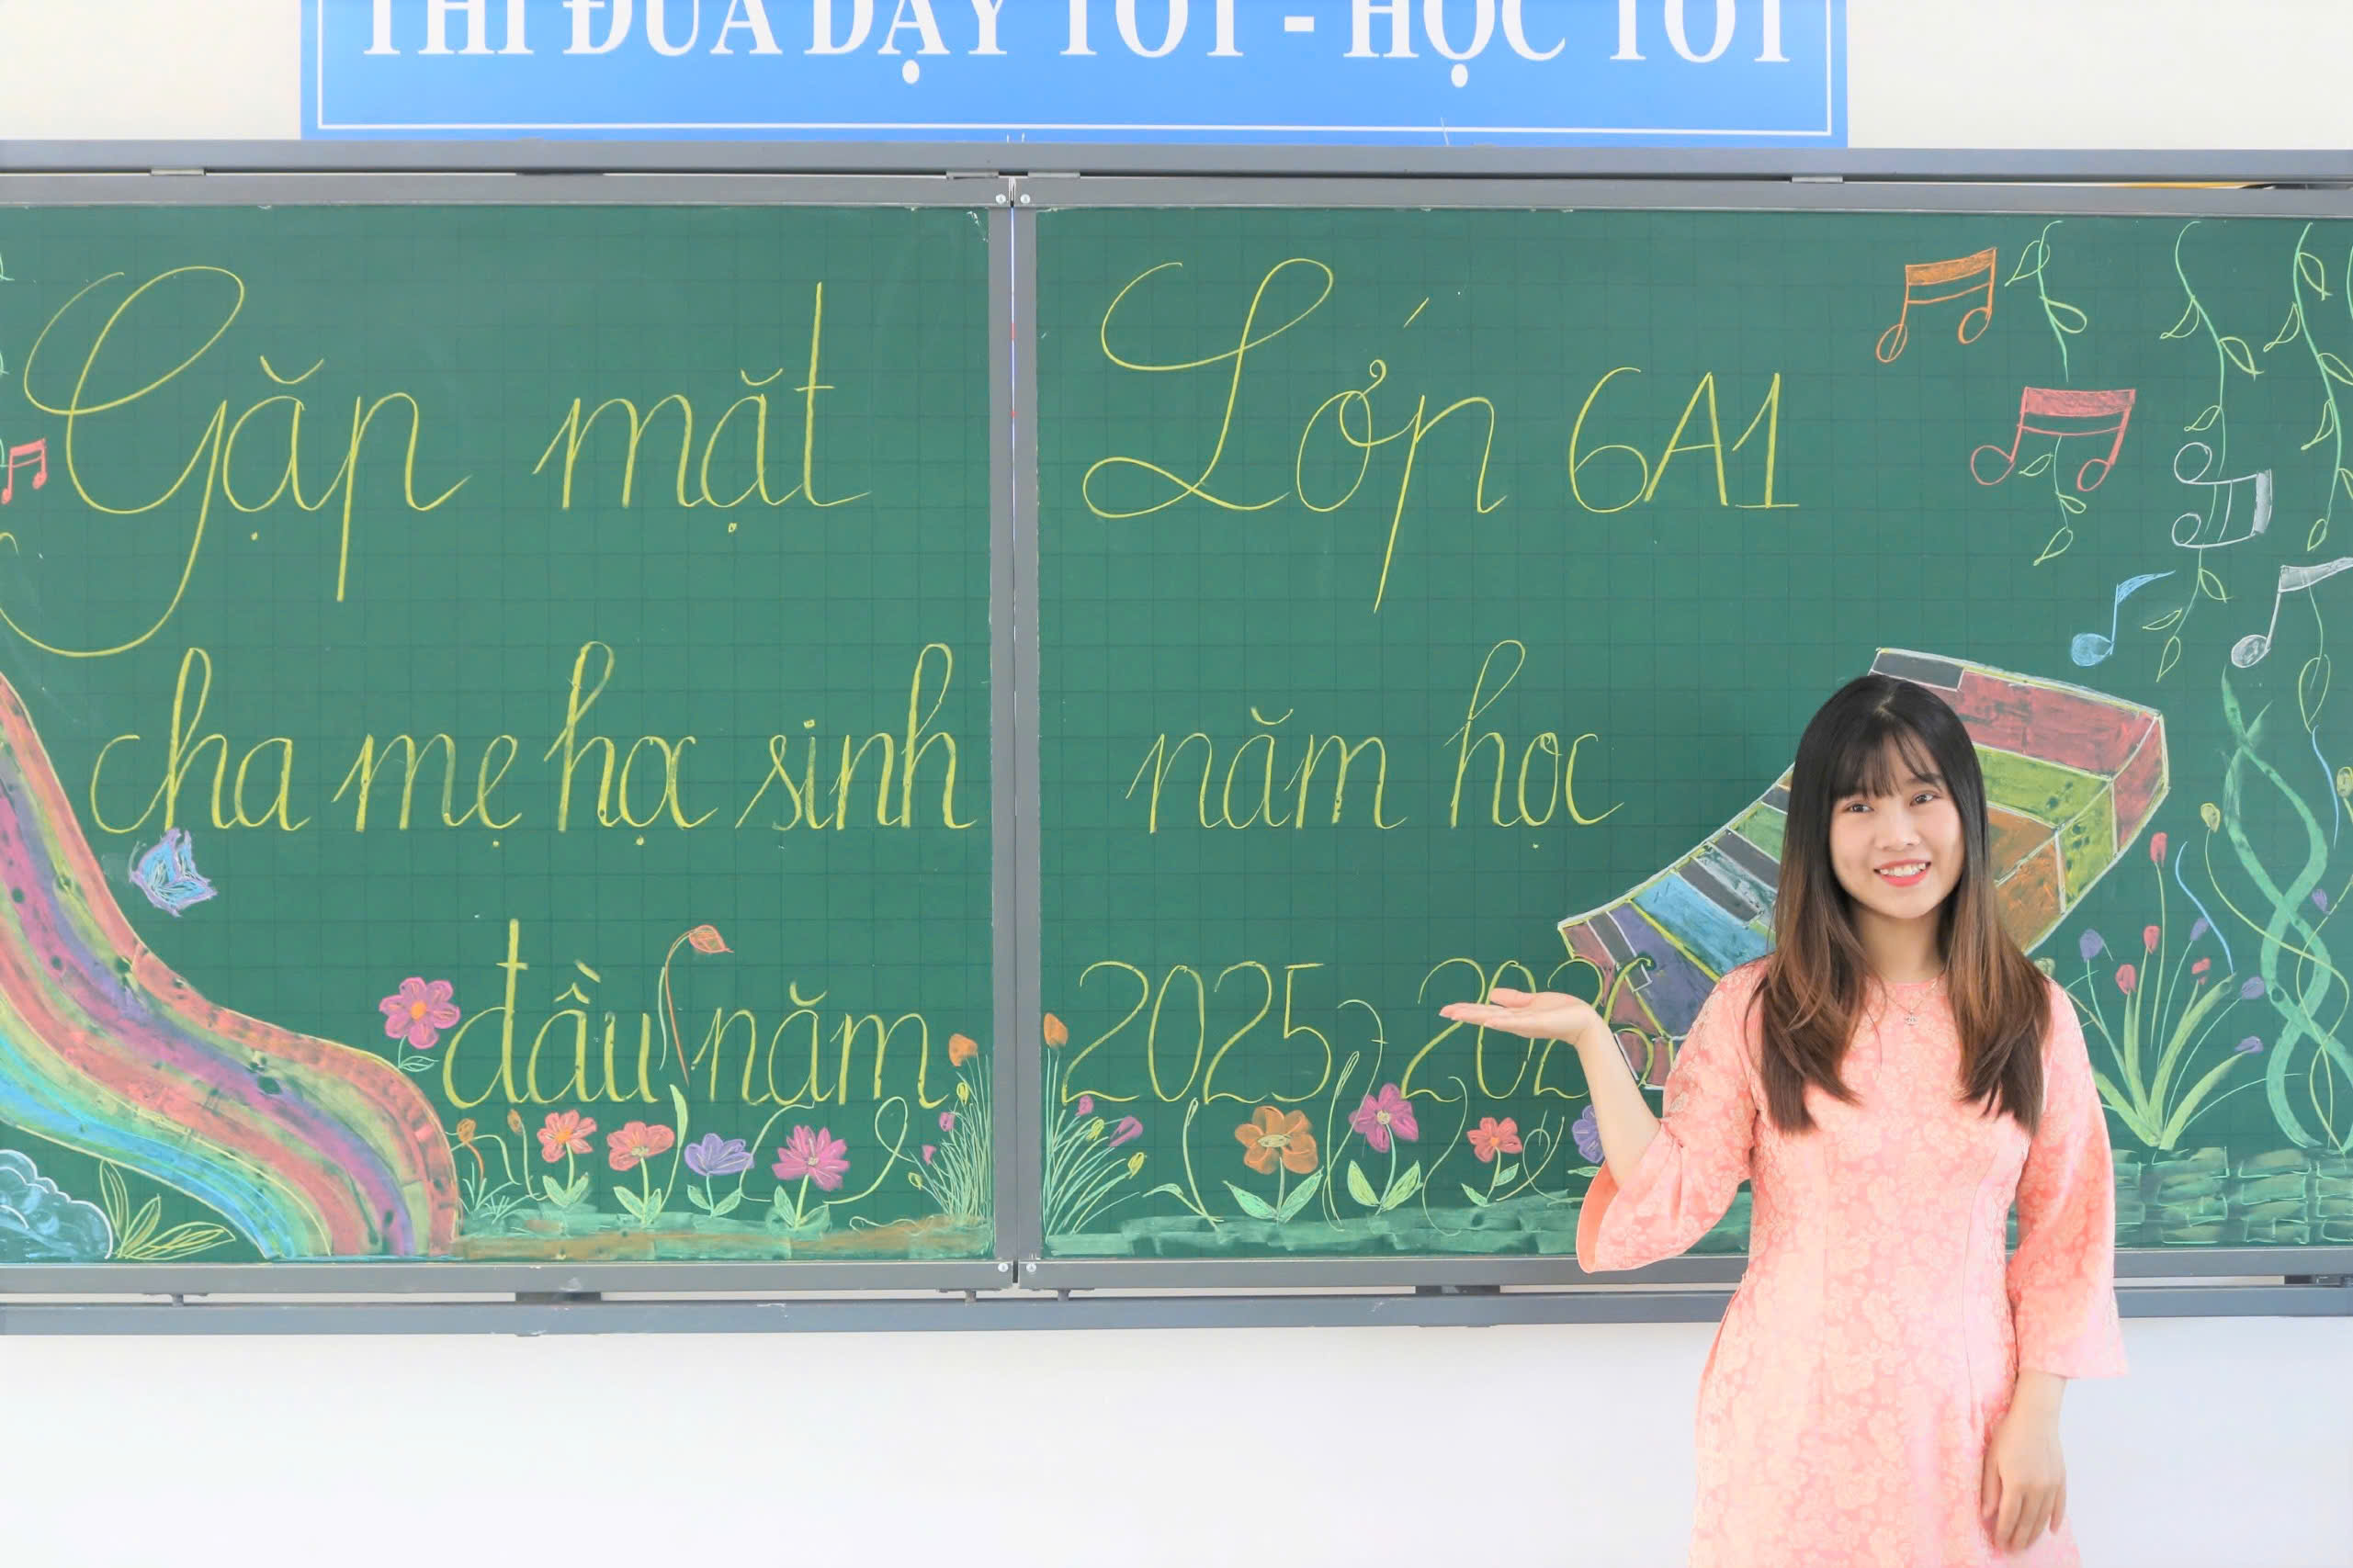 THI ĐUA DẠY TỐT - HỌC TỐT
Gặp mặt
cha mẹ học sinh
đầu năm
Lớp 6A1
năm học
2025-2026